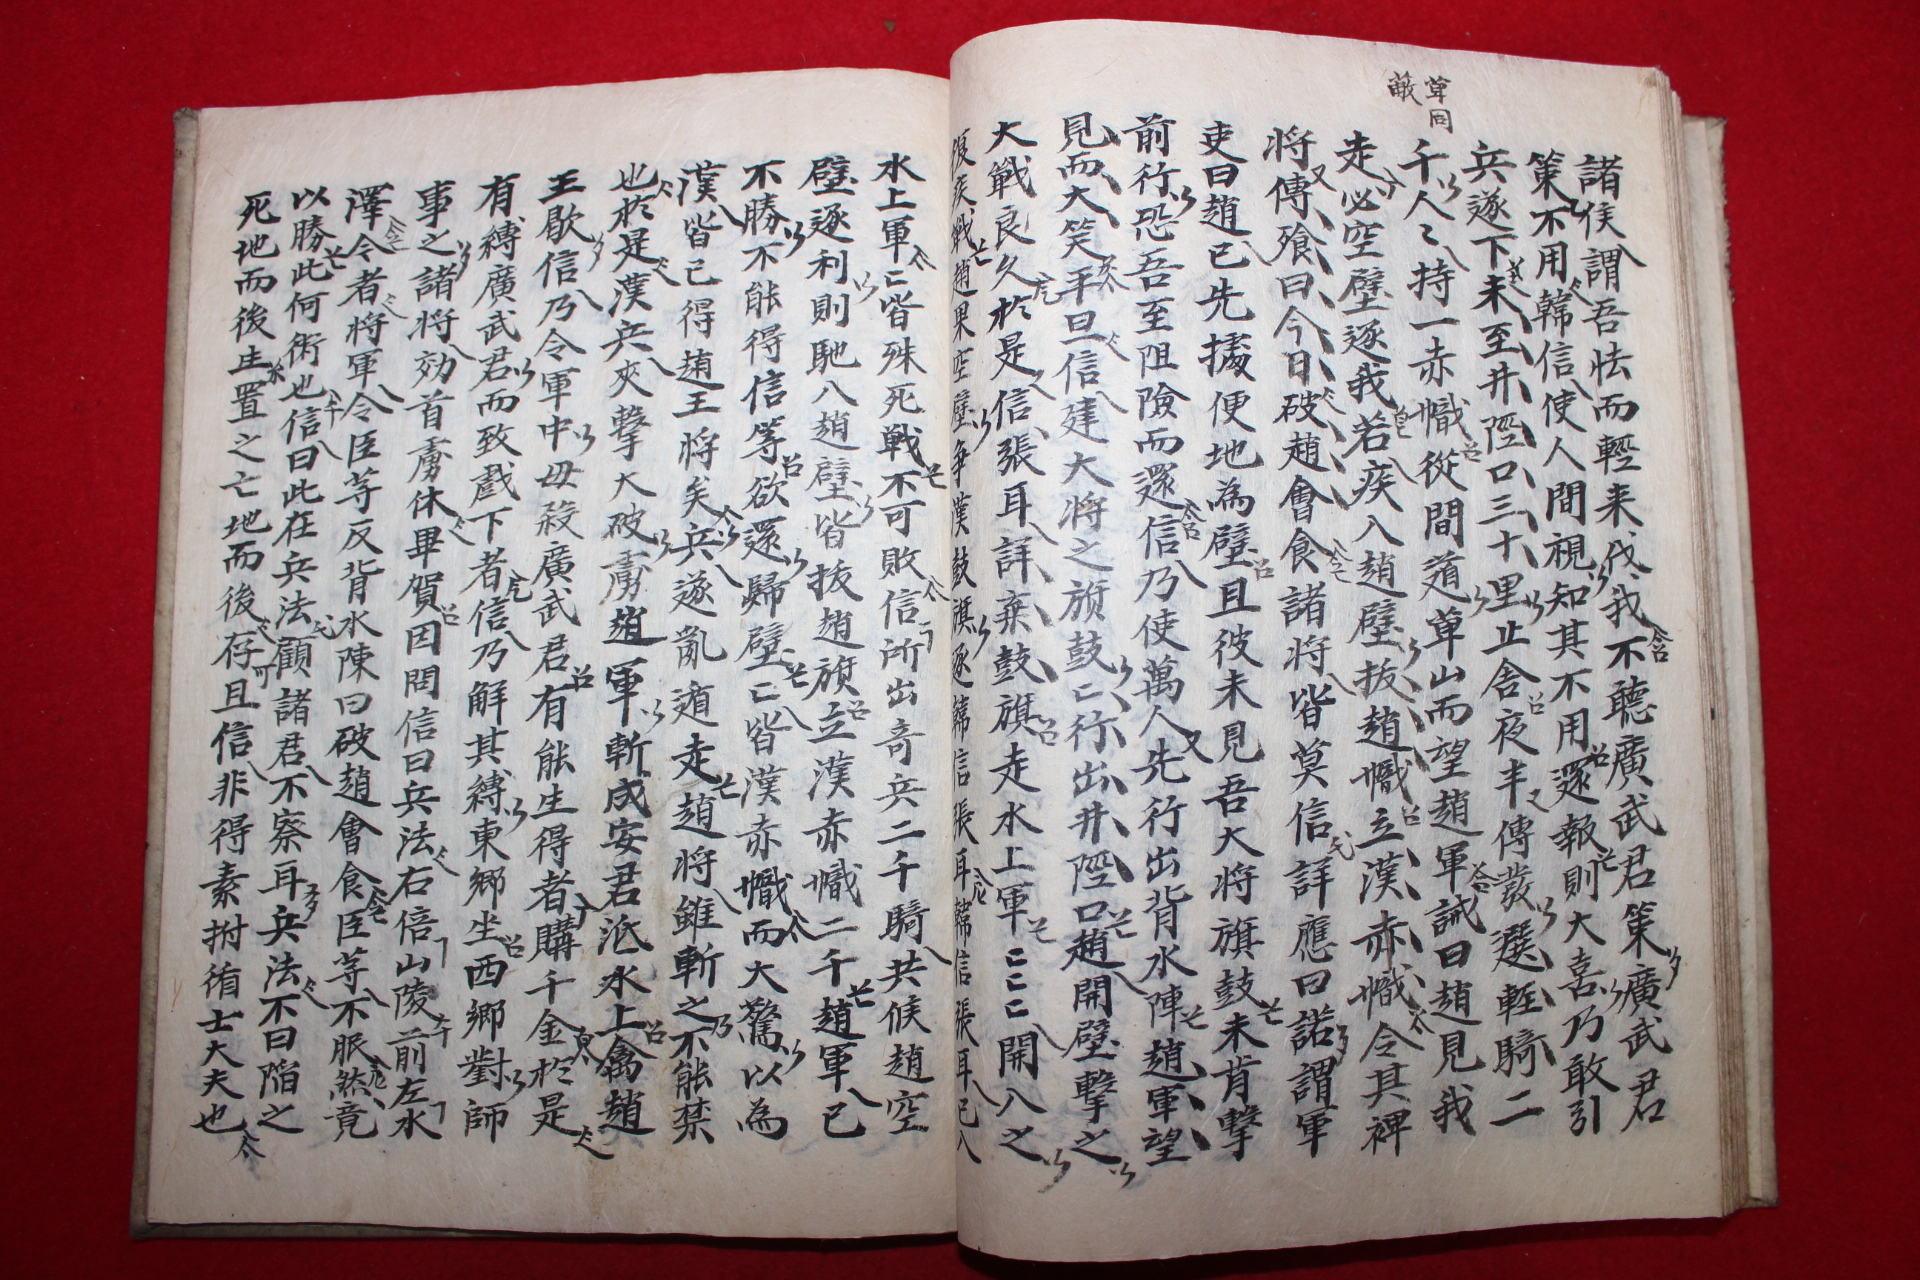 萆同
蔽
諸侯謂吾怯而輕来伐我不聽廣武君策廣武君
策不用韓信使人間視知其不用還報則大喜乃敢引
兵遂下未至井陘口三十里止舍夜半傳發選輕騎二
千人〻持一赤幟從間道萆山而望趙軍誡曰趙見我
走必空壁逐我若疾入趙壁拔趙幟立漢赤幟令其裨
将傳飱曰今日破趙會食諸将皆莫信詳應曰諾謂軍
吏曰趙已先據便地為壁且彼未見吾大将旗鼓未肯擊
前行恐吾至阻險而還信乃使萬人先行出背水陣趙軍望
見而大笑平旦信建大将之旗鼓〻行出井陘口趙開壁擊之
大戰良久於是信張耳詳棄鼓旗走水上軍〻〻〻開入之
復疾戰趙果空壁争漢鼓旗逐韓信張耳韓信張耳已入
水上軍〻皆殊死戰不可敗信所出竒兵二千騎共候趙空
壁逐利則馳入趙壁皆拔趙旗立漢赤幟二千趙軍已
不勝不能得信等欲還歸壁〻皆漢赤幟而大驚以為
漢皆已得趙王将矣兵遂亂遁走趙将雖斬之不能禁
也於是漢兵夾擊大破虜趙軍斬成安君泜水上禽趙
王歇信乃令軍中毋殺廣武君有能生得者購千金於是
有縛廣武君而致戲下者信乃解其縛東鄉坐西鄉對師
事之諸将効首虜休畢賀因問信曰兵法右倍山陵前左水
澤令者将軍令臣等反背水陳曰破趙會食臣等不服然竟
以勝此何術也信曰此在兵法顧諸君不察耳兵法不曰陷之
死地而後生置之亡地而後存且信非得素拊循士大夫也